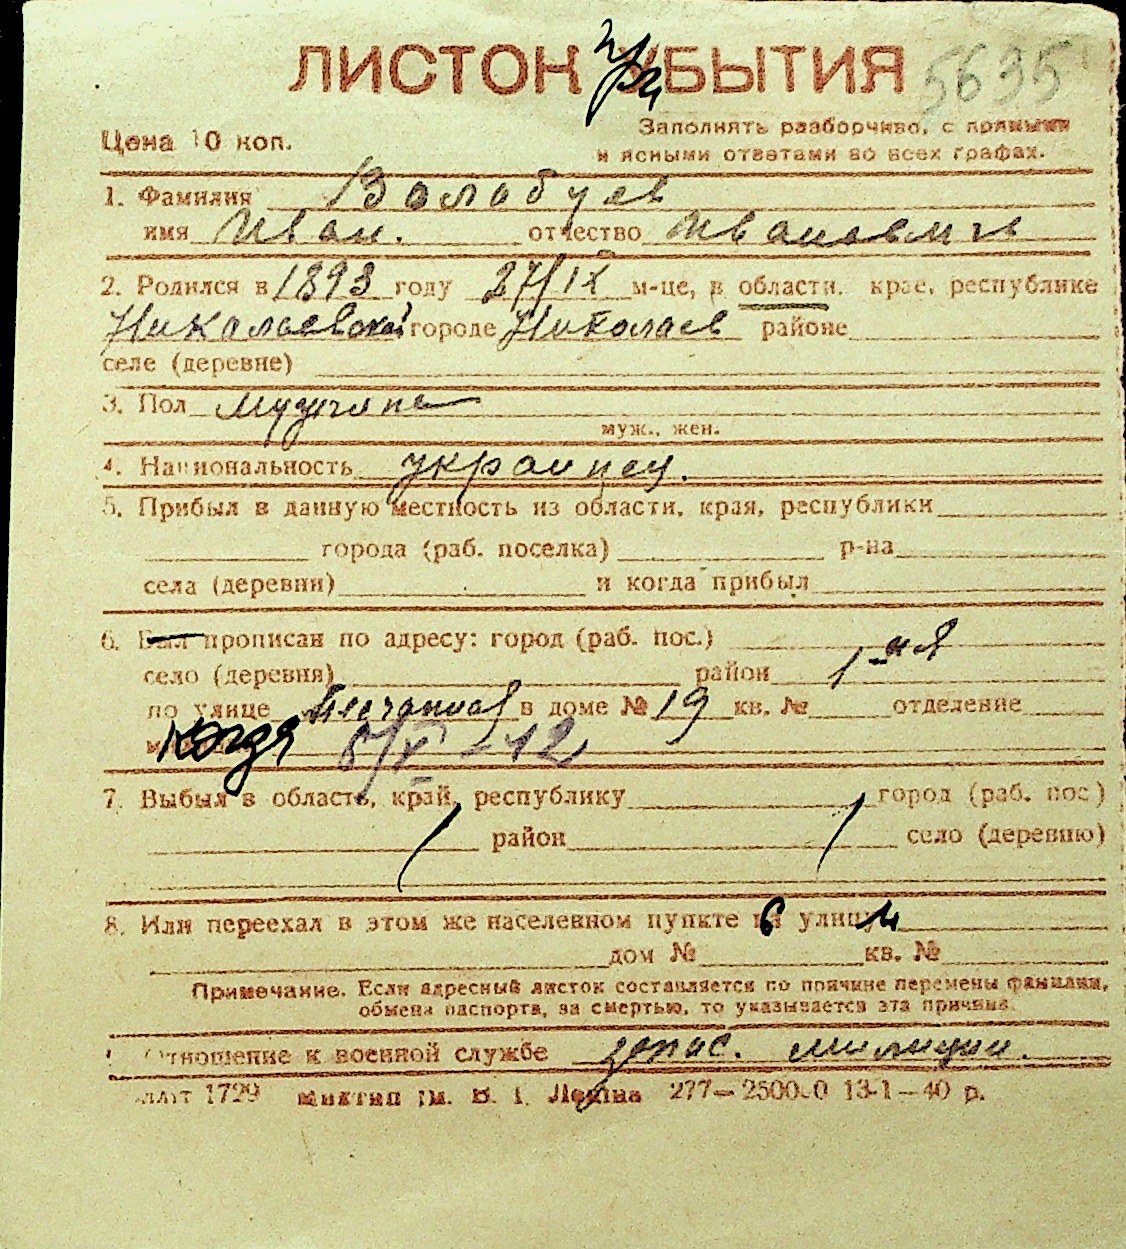 ЛИСТОК УБЫТИЯ 5635
при
Цена 10 коп.
Заполнять разборчиво, с прямыми
и ясными ответами во всех графах.
1. Фамилия Волобуев
имя Иван. отчество Иванович
2. Родился в 1893 году 27/IX м-це, в области, крае, республике
Николаевской городе Николаев районе
селе (деревне)
3. Пол мужчина
муж., жен.
4. Национальность украинец.
5. Прибыл в данную местность из области, края, республики
города (раб. поселка) р-на
села (деревни) и когда прибыл
6. Был прописан по адресу: город (раб. пос.)
село (деревня) район 1-ая
по улице Песчаная в доме № 19 кв. № отделение
когда 5/XI-42
7. Выбыл в область, край, республику город (раб. пос.)
район село (деревню)
8. Или переехал в этом же населенном пункте на улицу
дом № кв. №
Примечание. Если адресный листок составляется по причине перемены фамилии,
обмена паспорта, за смертью, то указывается эта причина.
Отношение к военной службе запас. милиции.
1729 им. В. И. Ленина 277—250000 13-1—40 р.